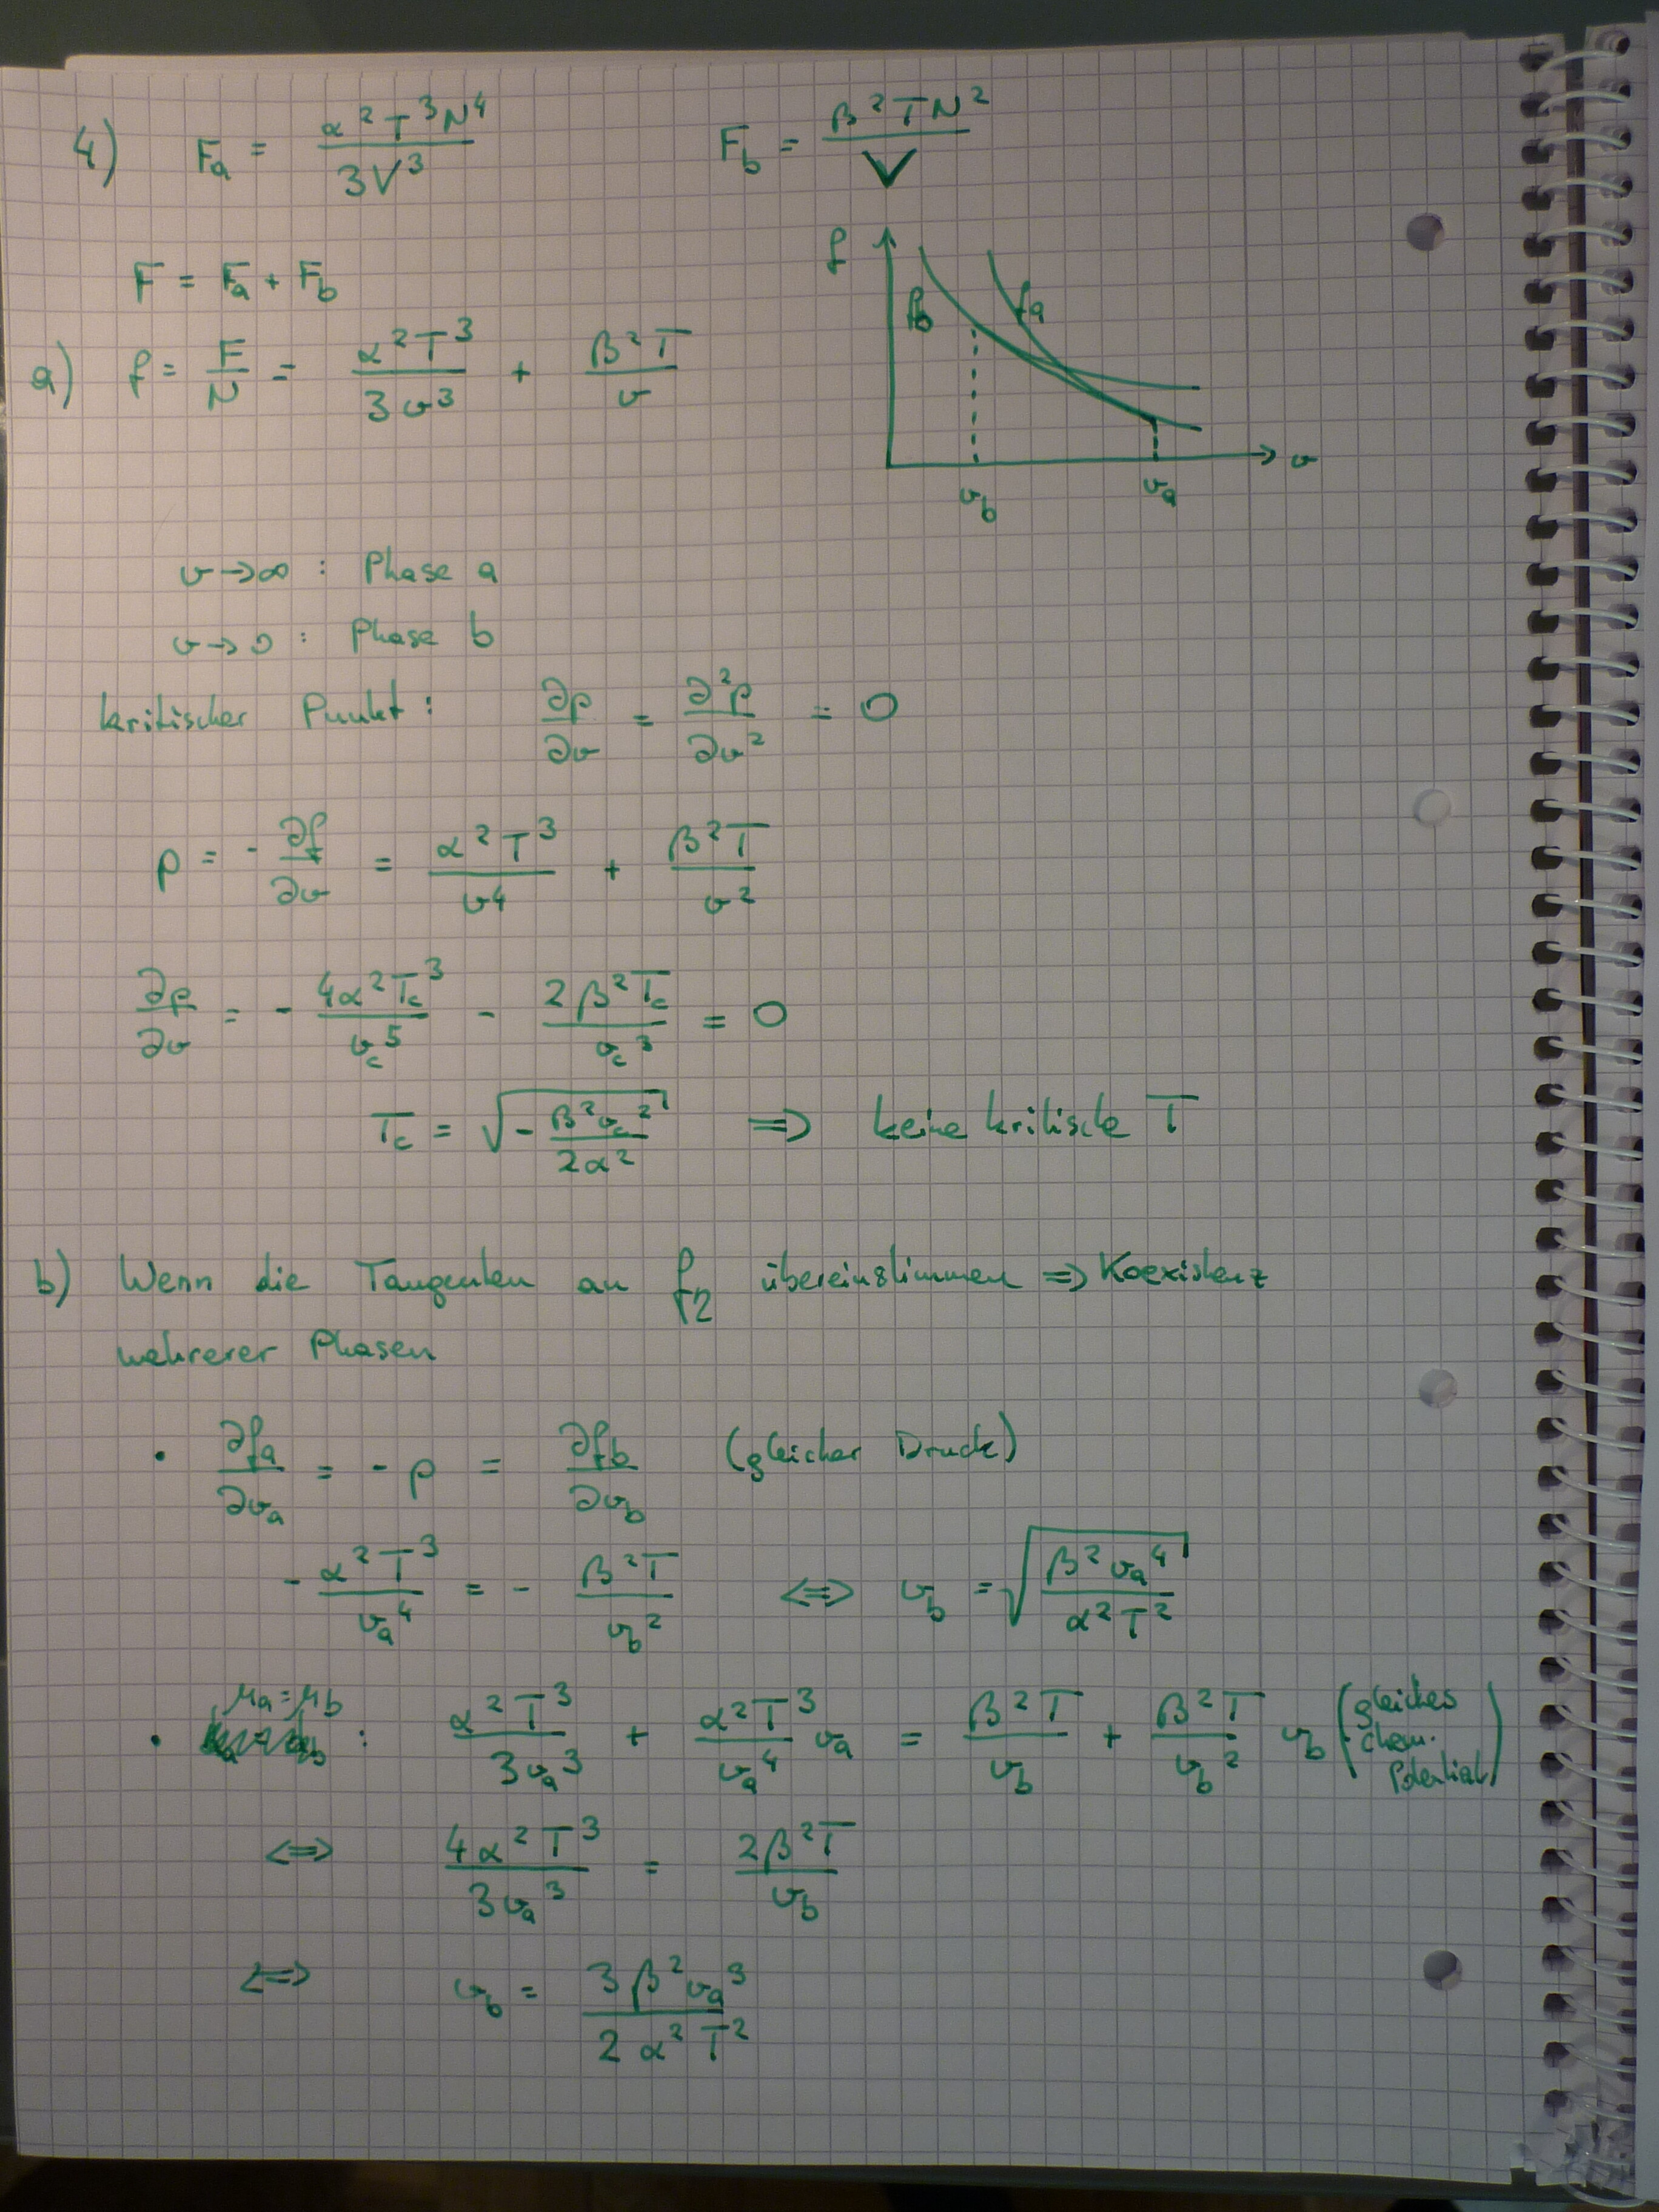 4) F_a = α²T³N⁴ / 3V³    F_b = β²TN² / V
F = F_a + F_b
f
f_b f_a
v
v_b v_a
a) f = F/N = α²T³ / 3v³ + β²T / v
v → ∞ : Phase a
v → 0 : Phase b
kritischer Punkt : ∂p/∂v = ∂²p/∂v² = 0
p = - ∂f/∂v = α²T³ / v⁴ + β²T / v²
∂p/∂v = - 4α²T_c³ / v_c⁵ - 2β²T_c / v_c³ = 0
T_c = √(- β²v_c² / 2α²) ⇒ keine kritische T
b) Wenn die Tangenten an f_2 übereinstimmen ⇒ Koexistenz
mehrerer Phasen
• ∂f_a/∂v_a = - p = ∂f_b/∂v_b (gleicher Druck)
- α²T³ / v_a⁴ = - β²T / v_b² ⇔ v_b = √(β²v_a⁴ / α²T²)
• μ_a = μ_b : α²T³ / 3v_a³ + α²T³ / v_a⁴ v_a = β²T / v_b + β²T / v_b² v_b (gleiches chem. Potential)
⇔ 4α²T³ / 3v_a³ = 2β²T / v_b
⇔ v_b = 3β²v_a³ / 2α²T²